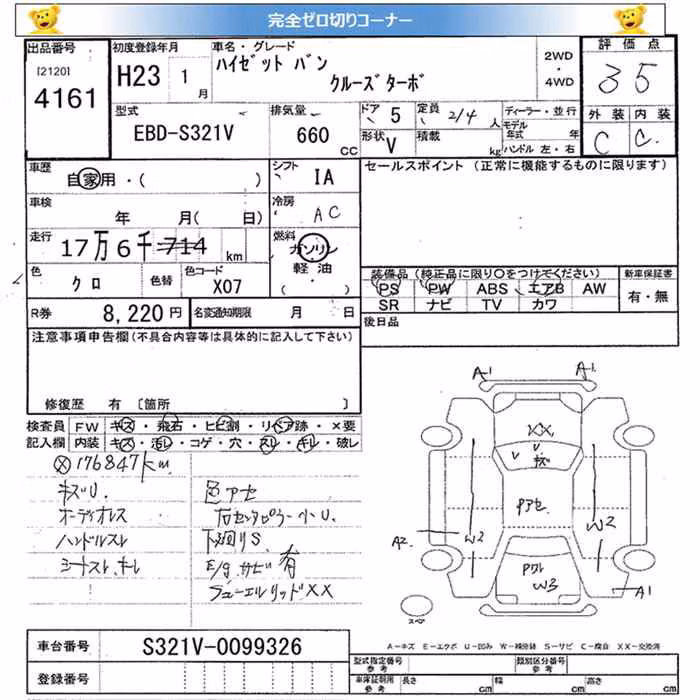 完全ゼロ切りコーナー
出品番号
[2120]
4161
初度登録年月
H23 1 月
車名・グレード
ハイゼット バン
クルーズターボ
2WD
・
4WD
評価点
3 5
型式
EBD-S321V
排気量
660 CC
ドア 5
定員 2/4 人
形状 V
積載 kg
ディーラー・並行
モデル
年式 年
ハンドル 左・右
外装 内装
C C
車歴
自家用・( )
シフト
IA
セールスポイント (正常に機能するものに限ります)
車検
年 月( 日)
冷房
AC
走行
17万6千714 km
燃料
ガソリン
軽油
( ・ )
色
クロ
色替
色コード
X07
装備品 (純正品に限り○をつけてください)
新車保証書
PS PW ABS エアB AW
SR ナビ TV カワ
有・無
R券 8,220円
名変通知期限 月 日
後日品
注意事項申告欄(不具合内容等は具体的に記入して下さい)
修復歴 有 〔箇所 〕
検査員
記入欄
FW キズ・飛石・ヒビ割・リペア跡・×要
内装 キズ・汚レ・コゲ・穴・スレ・キレ・破レ
Ⓧ176847km
キズU.
オーディオレス
ハンドルスレ
シートスレ、キレ
色アセ
右センタピラー小U.
下廻りS.
E/g.サビ有
フューエルリッドXX
A1 A1
XX
U
U キズ
アセ
W2
W2
A2
W3
A1
スペア
A−キズ E−エクボ U−凹み W−補修跡 S−サビ C−腐食 XX−交換済
車台番号 S321V-0099326
登録番号
型式指定番号
参考
類別区分番号
参考
車庫証明用
参考
長さ cm
幅 cm
高さ cm